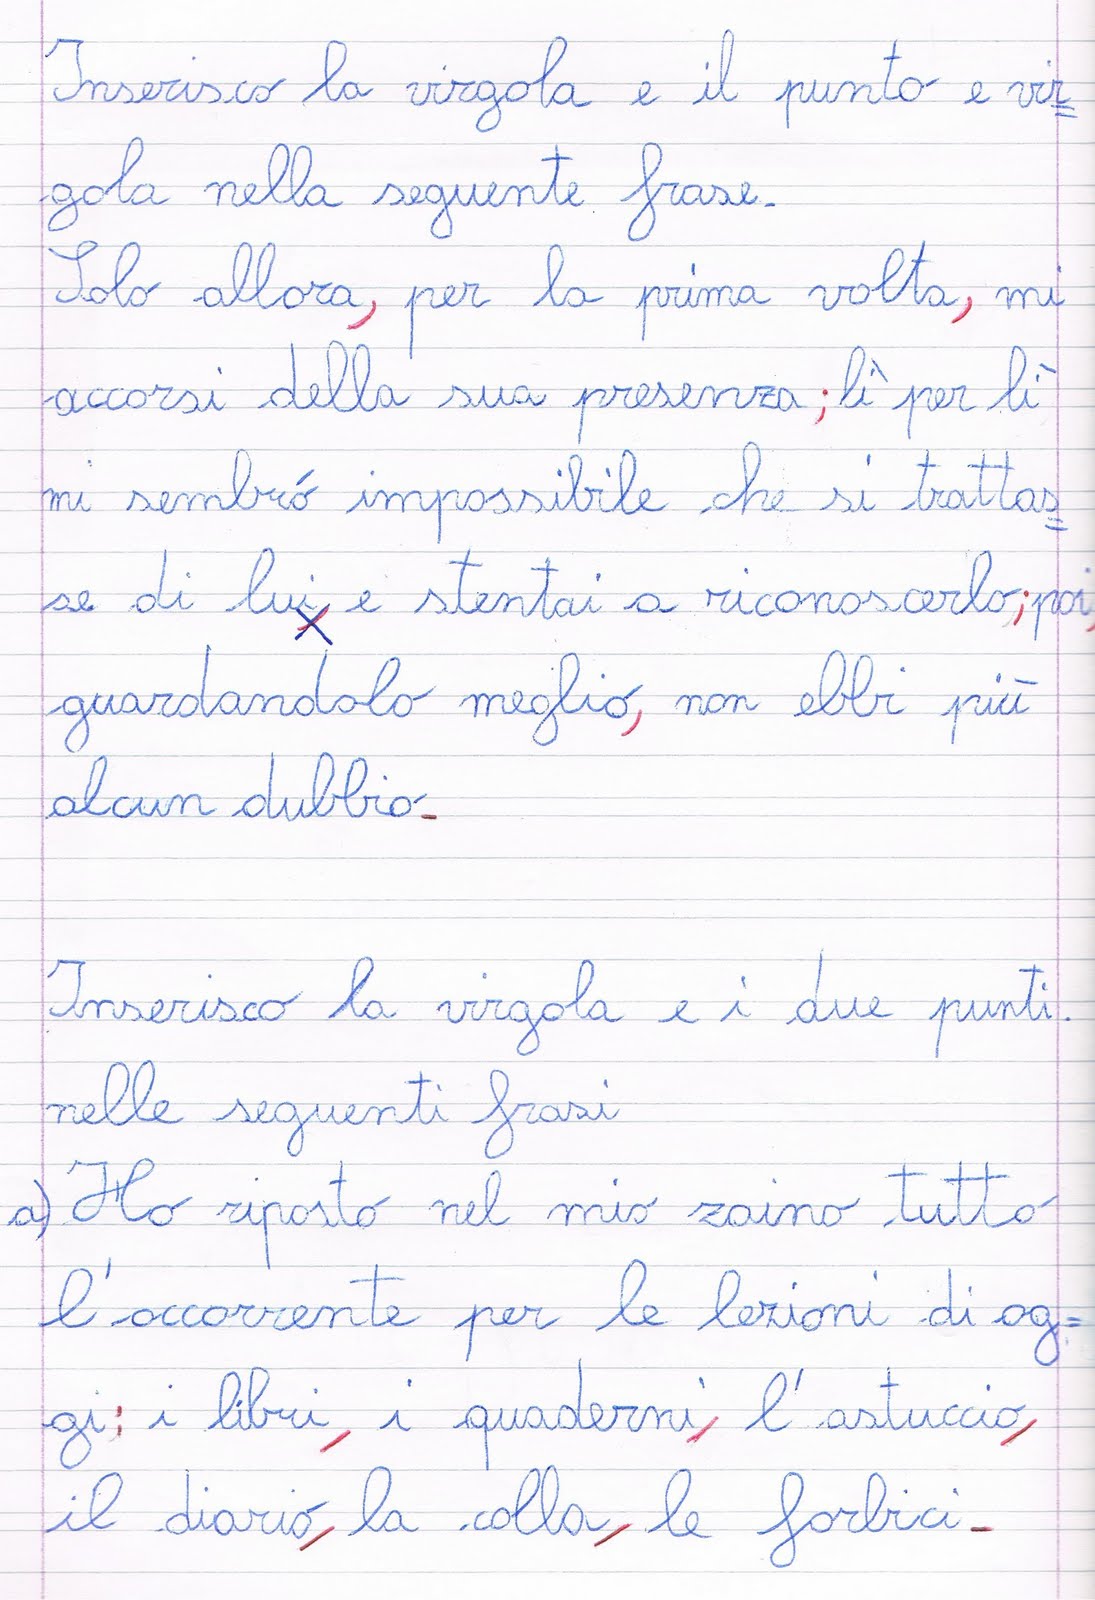 Inserisco la virgola e il punto e vir=
gola nella seguente frase.
Solo allora, per la prima volta, mi
accorsi della sua presenza; lì per lì
mi sembró impossibile che si trattas=
se di lui, e stentai a riconoscerlo; poi,
guardandolo meglio, non ebbi più
alcun dubbio.
Inserisco la virgola e i due punti.
nelle seguenti frasi
a) Ho riposto nel mio zaino tutto
l'occorrente per le lezioni di og=
gi: i libri, i quaderni, l'astuccio,
il diario, la colla, le forbici.